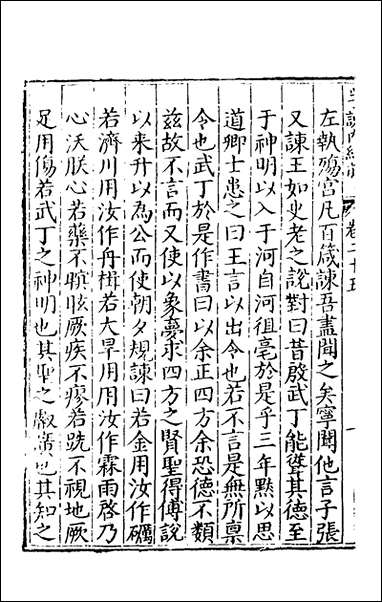 左執殤宮凡百箴諫吾盡聞之矣寧聞他言子張
又諫王如史老之說對曰昔殷武丁能聳其德至
于神明以入于河自河徂亳於是乎三年默以思
道卿士患之曰王言以出令也若不言是無所稟
令也武丁於是作書曰以余正四方余恐德不類
茲故不言而又使以象夢求四方之賢聖得傅說
以来升以為公而使朝夕規諫曰若金用汝作礪
若濟川用汝作舟楫若大旱用汝作霖雨啓乃
心沃朕心若藥不瞑眩厥疾不瘳若跣不視地厥
足用傷若武丁之神明也其聖之叡廣也其知之
卷二十五